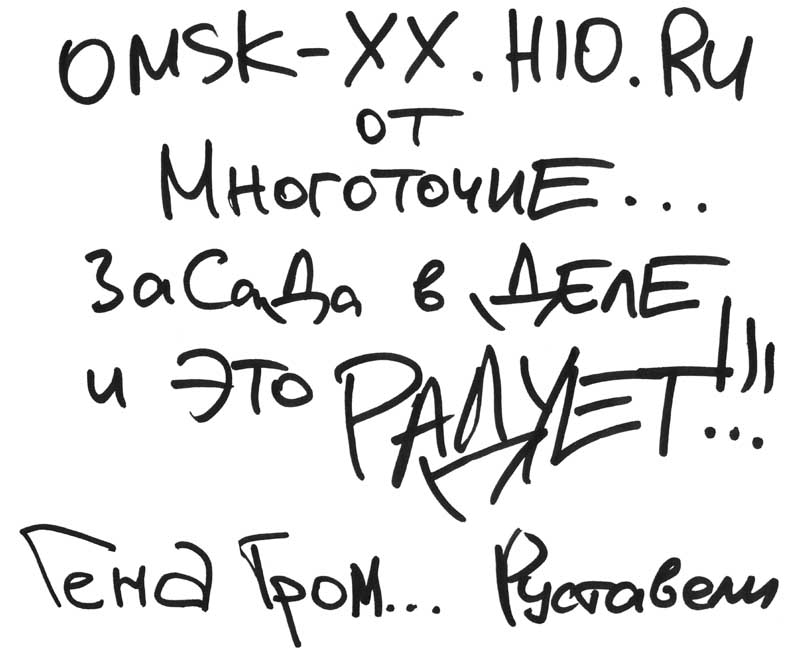 OMSK-XX.H10.RU
от
Многоточие...
Засада в деле
и это РАДУЕТ!!!
Гена Гром... Руставели